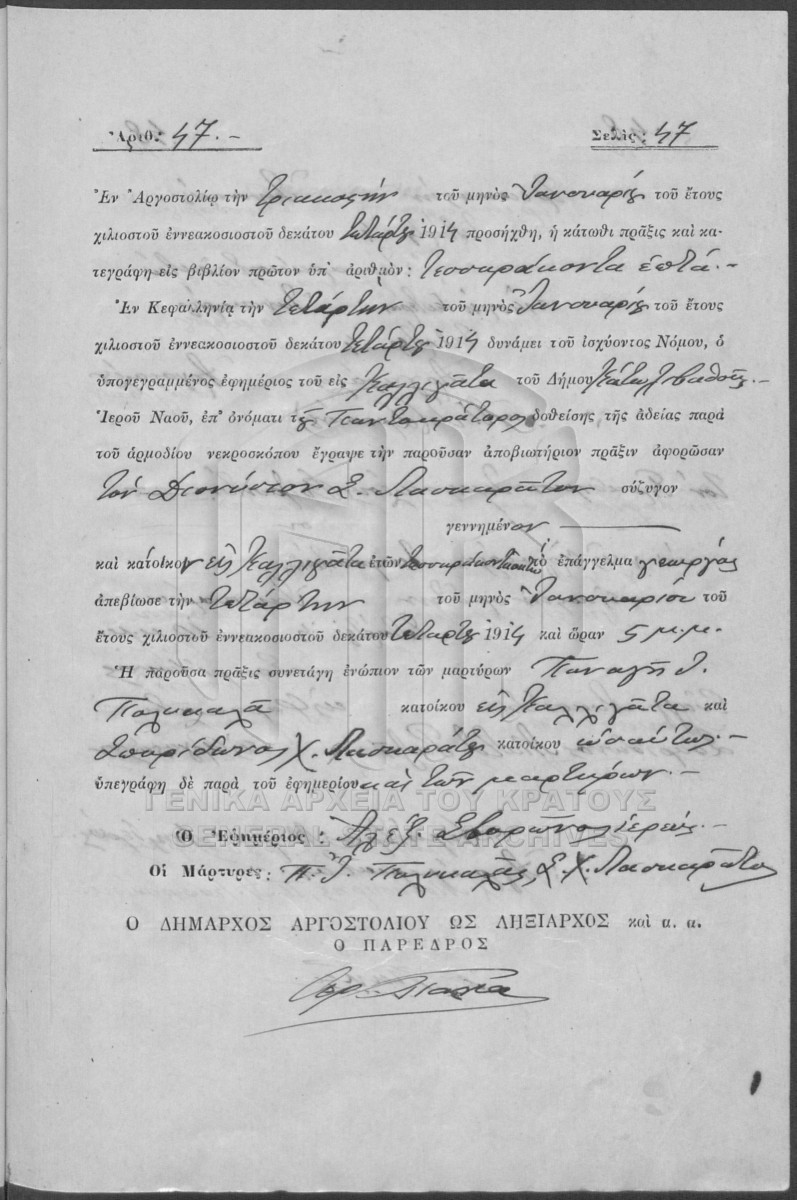 Ἀριθ. 47.-
Σελὶς: 47
Ἐν Ἀργοστολίῳ τὴν Τριακοστὴν τοῦ μηνὸς Ἰανουαρίου τοῦ ἔτους
χιλιοστοῦ ἐννεακοσιοστοῦ δεκάτου τετάρτου 1914 προσήχθη, ἡ κάτωθι πρᾶξις καὶ κα-
τεγράφη εἰς βιβλίον πρῶτον ὑπ' ἀριθμὸν: τεσσαράκοντα ἑπτά.-
Ἐν Κεφαλληνίᾳ τὴν Τετάρτην τοῦ μηνὸς Ἰανουαρίου τοῦ ἔτους
χιλιοστοῦ ἐννεακοσιοστοῦ δεκάτου τετάρτου 1914 δυνάμει τοῦ ἰσχύοντος Νόμου, ὁ
ὑπογεγραμμένος ἐφημέριος τοῦ εἰς Καλλιγᾶτα τοῦ Δήμου
Ἱεροῦ Ναοῦ, ἐπ' ὀνόματι τοῦ Παντοκράτορος δοθείσης τῆς ἀδείας παρὰ
τοῦ ἁρμοδίου νεκροσκόπου ἔγραψε τὴν παροῦσαν ἀποβιωτήριον πρᾶξιν ἀφορῶσαν
τὸν Διονύσιον Σ. Λασκαρᾶτον σύζυγον
γεννημένον
καὶ κατοίκον εἰς Καλλιγᾶτα ἐτῶν τὸ ἐπάγγελμα γεωργὸς
ἀπεβίωσε τὴν Τετάρτην τοῦ μηνὸς Ἰανουαρίου τοῦ
ἔτους χιλιοστοῦ ἐννεακοσιοστοῦ δεκάτου τετάρτου 1914 καὶ ὥραν 5 μ.μ.
Ἡ παροῦσα πρᾶξις συνετάγη ἐνώπιον τῶν μαρτύρων Παναγῆ Ἰ.
Πολυκαλᾶ κατοίκου εἰς Καλλιγᾶτα καὶ
Σπυρίδωνος Χ. Λασκαράτου κατοίκου ὡσαύτως.-
ὑπεγράφη δὲ παρὰ τοῦ ἐφημερίου καὶ τῶν μαρτύρων.-
ΓΕΝΙΚΑ ΑΡΧΕΙΑ ΤΟΥ ΚΡΑΤΟΥΣ
GENERAL STATE ARCHIVES
Ὁ Ἐφημέριος: Ἀλέξ. Σβορῶνος ἱερεύς.-
Οἱ Μάρτυρες: Π. Ἰ. Πολυκαλᾶς, Σ. Χ. Λασκαρᾶτος
Ο ΔΗΜΑΡΧΟΣ ΑΡΓΟΣΤΟΛΙΟΥ ΩΣ ΛΗΞΙΑΡΧΟΣ καὶ α. α.
Ο ΠΑΡΕΔΡΟΣ